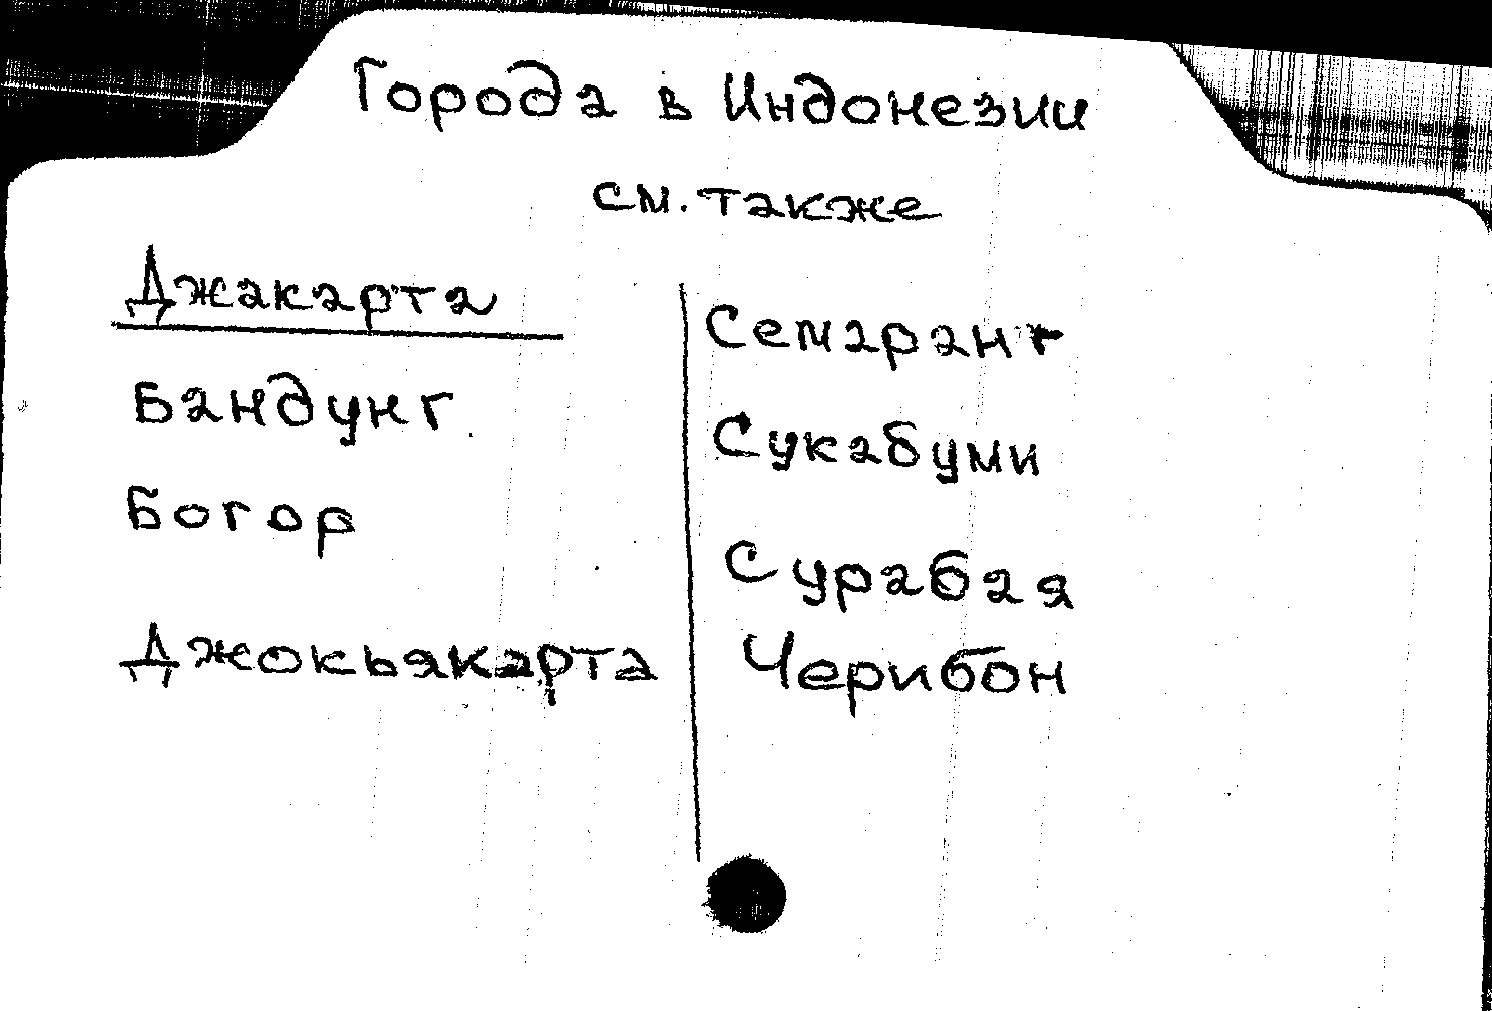 Города в Индонезии
см. также
Джакарта
Бандунг
Богор
Джокьякарта
Семаранг
Сукабуми
Сурабая
Черибон